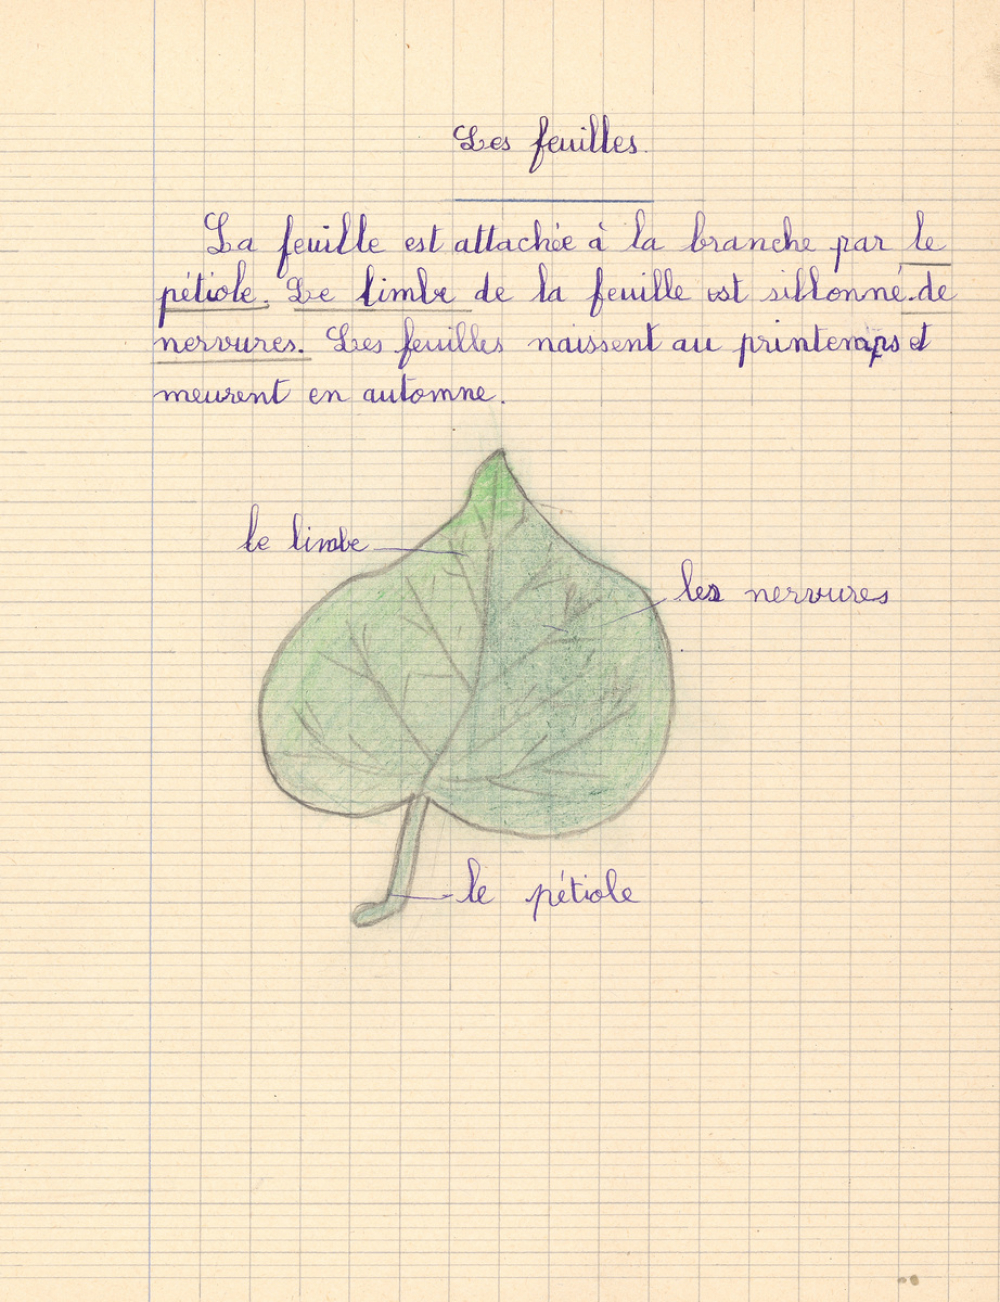 Les feuilles.
La feuille est attachée à la branche par le
pétiole. Le limbe de la feuille est sillonné de
nervures. Les feuilles naissent au printemps et
meurent en automne.
le limbe
les nervures
le pétiole